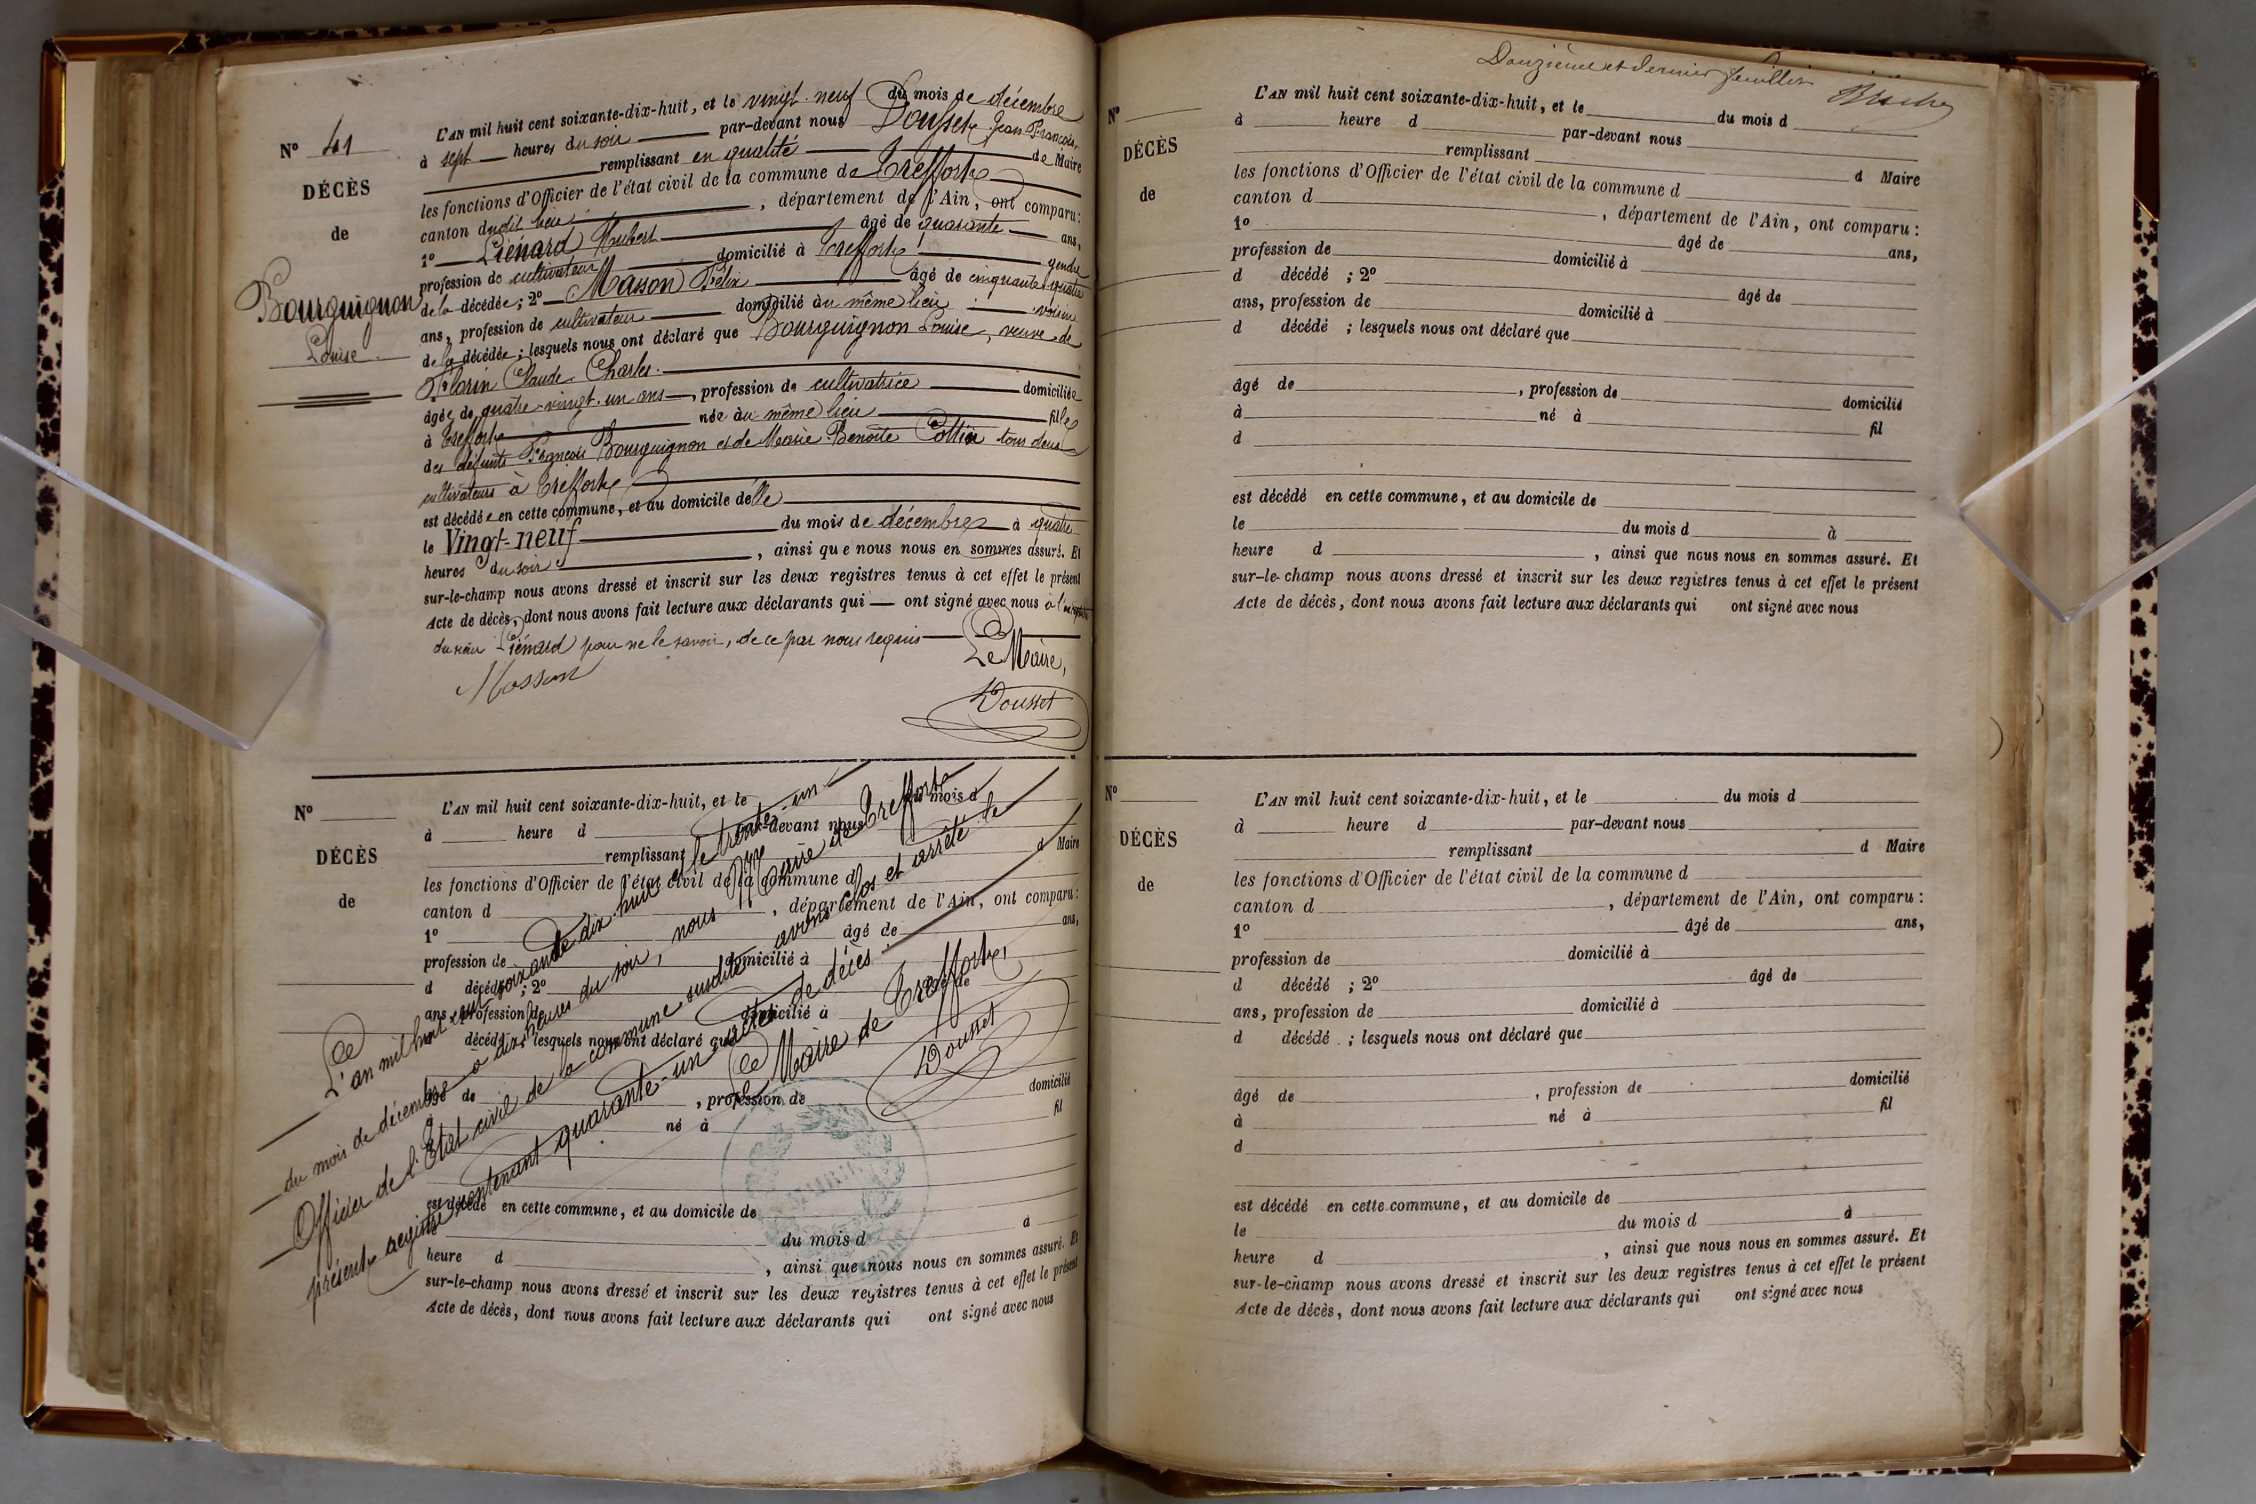 N° 41
DÉCÈS
de
Bourguignon
Louise
L'AN mil huit cent soixante-dix-huit, et le vingt-neuf du mois de décembre
à sept heures du soir par-devant nous Dousset Jean François,
remplissant en qualité de Maire
les fonctions d'Officier de l'état civil de la commune de Treffort
canton dudit lieu, département de l'Ain, ont comparu :
1° Liénard Hubert âgé de quarante ans,
profession de cultivateur domicilié à Treffort gendre
de la décédée ; 2° Masson Félix âgé de cinquante quatre
ans, profession de cultivateur domicilié au même lieu voisin
de la décédée ; lesquels nous ont déclaré que Bourguignon Louise, veuve de
Florin Claude Charles
âgée de quatre-vingt-un ans, profession de cultivatrice domiciliée
à Treffort née au même lieu fille
des défunts François Bourguignon et de Marie Benoîte Cottin tous deux
cultivateurs à Treffort
est décédée en cette commune, et au domicile d'elle
le Vingt-neuf du mois de décembre à quatre
heures du soir, ainsi que nous nous en sommes assuré. Et
sur-le-champ nous avons dressé et inscrit sur les deux registres tenus à cet effet le présent
Acte de décès, dont nous avons fait lecture aux déclarants qui ont signé avec nous à l'exception
du sieur Liénard pour ne le savoir, de ce par nous requis
Le Maire,
Masson
Dousset
N°
DÉCÈS
de
L'AN mil huit cent soixante-dix-huit, et le du mois d
à heure d par-devant nous
remplissant d Maire
les fonctions d'Officier de l'état civil de la commune d
canton d , département de l'Ain, ont comparu :
1° âgé de ans,
profession de domicilié à
d décédé ; 2° âgé de
ans, profession de domicilié à
d décédé ; lesquels nous ont déclaré que
âgé de , profession de domicilié
à né à fil
est décédé en cette commune, et au domicile de
du mois d à
heure d , ainsi que nous nous en sommes assuré. Et
sur-le-champ nous avons dressé et inscrit sur les deux registres tenus à cet effet le présent
Acte de décès, dont nous avons fait lecture aux déclarants qui ont signé avec nous
L'an mil huit cent soixante dix huit et le trente-un
du mois de décembre à dix heures du soir, nous Maire de Treffort
Officier de l'Etat civil de la commune susdite avons clos et arrêté le
présent registre contenant quarante-un actes de décès.
Le Maire de Treffort,
Dousset
Douzième et dernier feuillet
N°
DÉCÈS
de
L'AN mil huit cent soixante-dix-huit, et le du mois d
à heure d par-devant nous
remplissant d Maire
les fonctions d'Officier de l'état civil de la commune d
canton d , département de l'Ain, ont comparu :
1° âgé de ans,
profession de domicilié à
d décédé ; 2° âgé de
ans, profession de domicilié à
d décédé ; lesquels nous ont déclaré que
âgé de , profession de domicilié
à né à fil
d
est décédé en cette commune, et au domicile de
le du mois d à
heure d , ainsi que nous nous en sommes assuré. Et
sur-le-champ nous avons dressé et inscrit sur les deux registres tenus à cet effet le présent
Acte de décès, dont nous avons fait lecture aux déclarants qui ont signé avec nous
N°
DÉCÈS
de
L'AN mil huit cent soixante-dix-huit, et le du mois d
à heure d par-devant nous
remplissant d Maire
les fonctions d'Officier de l'état civil de la commune d
canton d , département de l'Ain, ont comparu :
1° âgé de ans,
profession de domicilié à
d décédé ; 2° âgé de
ans, profession de domicilié à
d décédé ; lesquels nous ont déclaré que
âgé de , profession de domicilié
à né à fil
d
est décédé en cette commune, et au domicile de
le du mois d à
heure d , ainsi que nous nous en sommes assuré. Et
sur-le-champ nous avons dressé et inscrit sur les deux registres tenus à cet effet le présent
Acte de décès, dont nous avons fait lecture aux déclarants qui ont signé avec nous